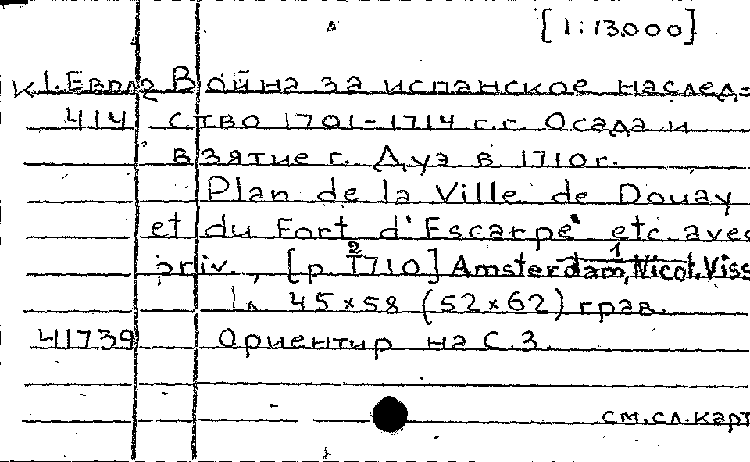 [1:13.000]
К 1. Европа Война за испанское наслед=
414 ство 1701-1714 г.г. Осада и
взятие г. Дуэ в 1710 г.
Plan de la Ville de Douay
et du Fort d'Escarpe etc. avec
priv., [p. 1710] Amsterdam, Nicol. Viss
1 л. 45×58 (52×62) грав.
41739 Ориентир на С.З.
см. сл. карт